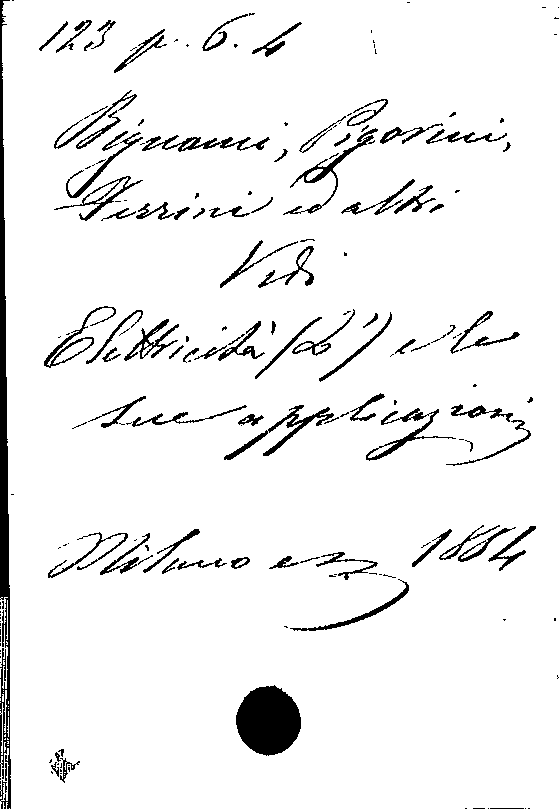 123 p. 6. 4
Bignami, Pigorini,
Ferrini ed altri
Vedi
Elettricità (L') e le
sue applicazioni
Milano 1884